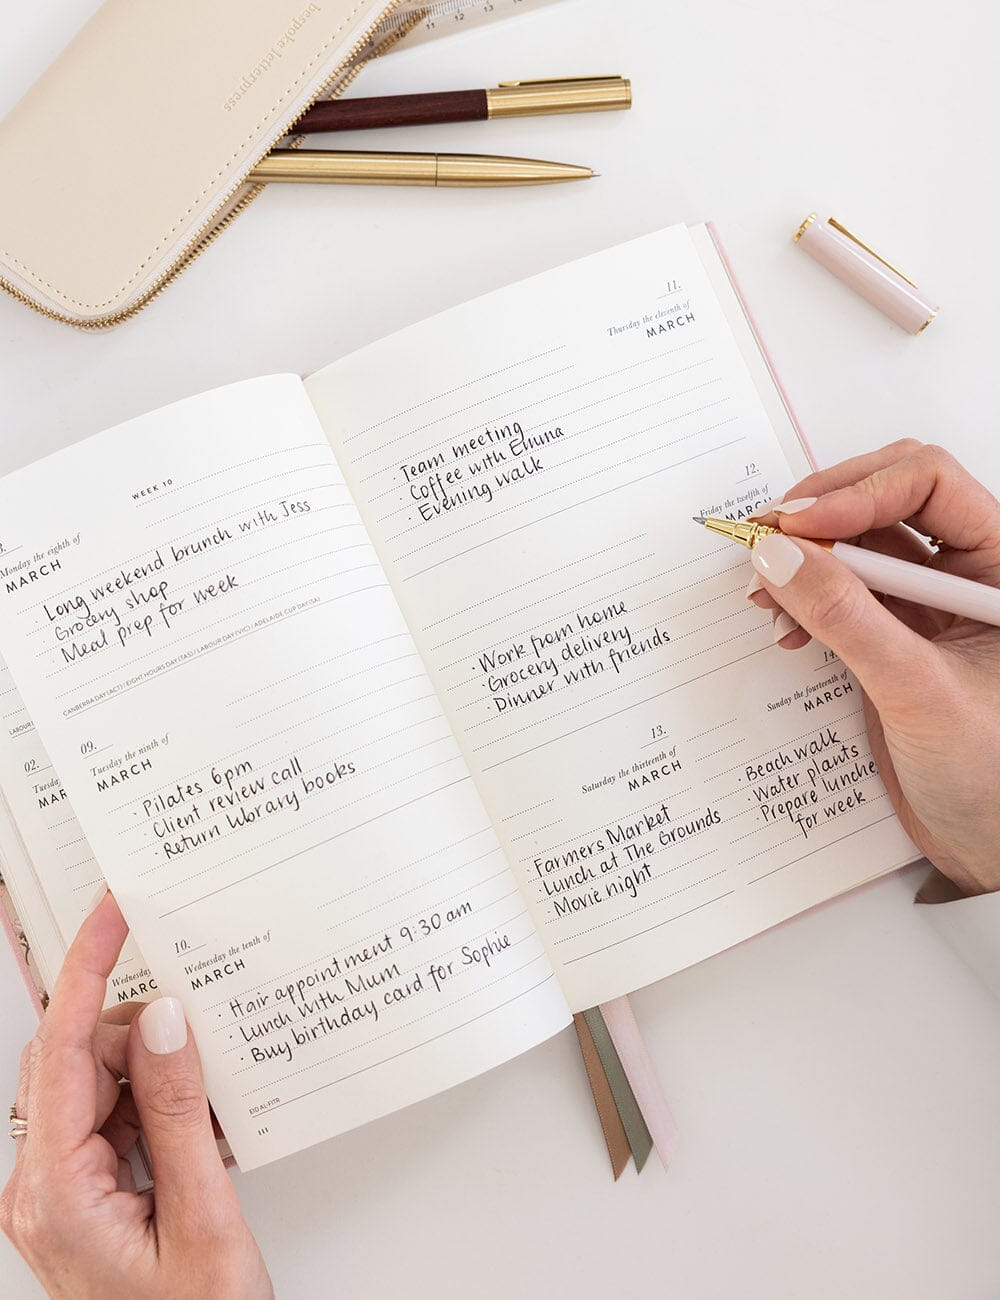 bespoke letterpress
10 11 12 13
WEEK 10
Monday the eighth of
MARCH
Long weekend brunch with Jess
Grocery shop
Meal prep for week
CANBERRA DAY (ACT) / EIGHT HOURS DAY (TAS) / LABOUR DAY (VIC) / ADELAIDE CUP DAY (SA)
09.
Tuesday the ninth of
MARCH
· Pilates 6pm
· Client review call
· Return library books
10.
Wednesday the tenth of
MARCH
· Hair appointment 9:30 am
· Lunch with Mum
· Buy birthday card for Sophie
EID AL-FITR
111
LABOUR
02.
Wednesday
MARC
11.
Thursday the eleventh of
MARCH
Team meeting
· Coffee with Emma
· Evening walk
12.
Friday the twelfth of
MARCH
· Work from home
· Grocery delivery
· Dinner with friends
13.
Saturday the thirteenth of
MARCH
Farmers Market
· Lunch at The Grounds
· Movie night
14.
Sunday the fourteenth of
MARCH
· Beach walk
· Water plants
· Prepare lunche
for week